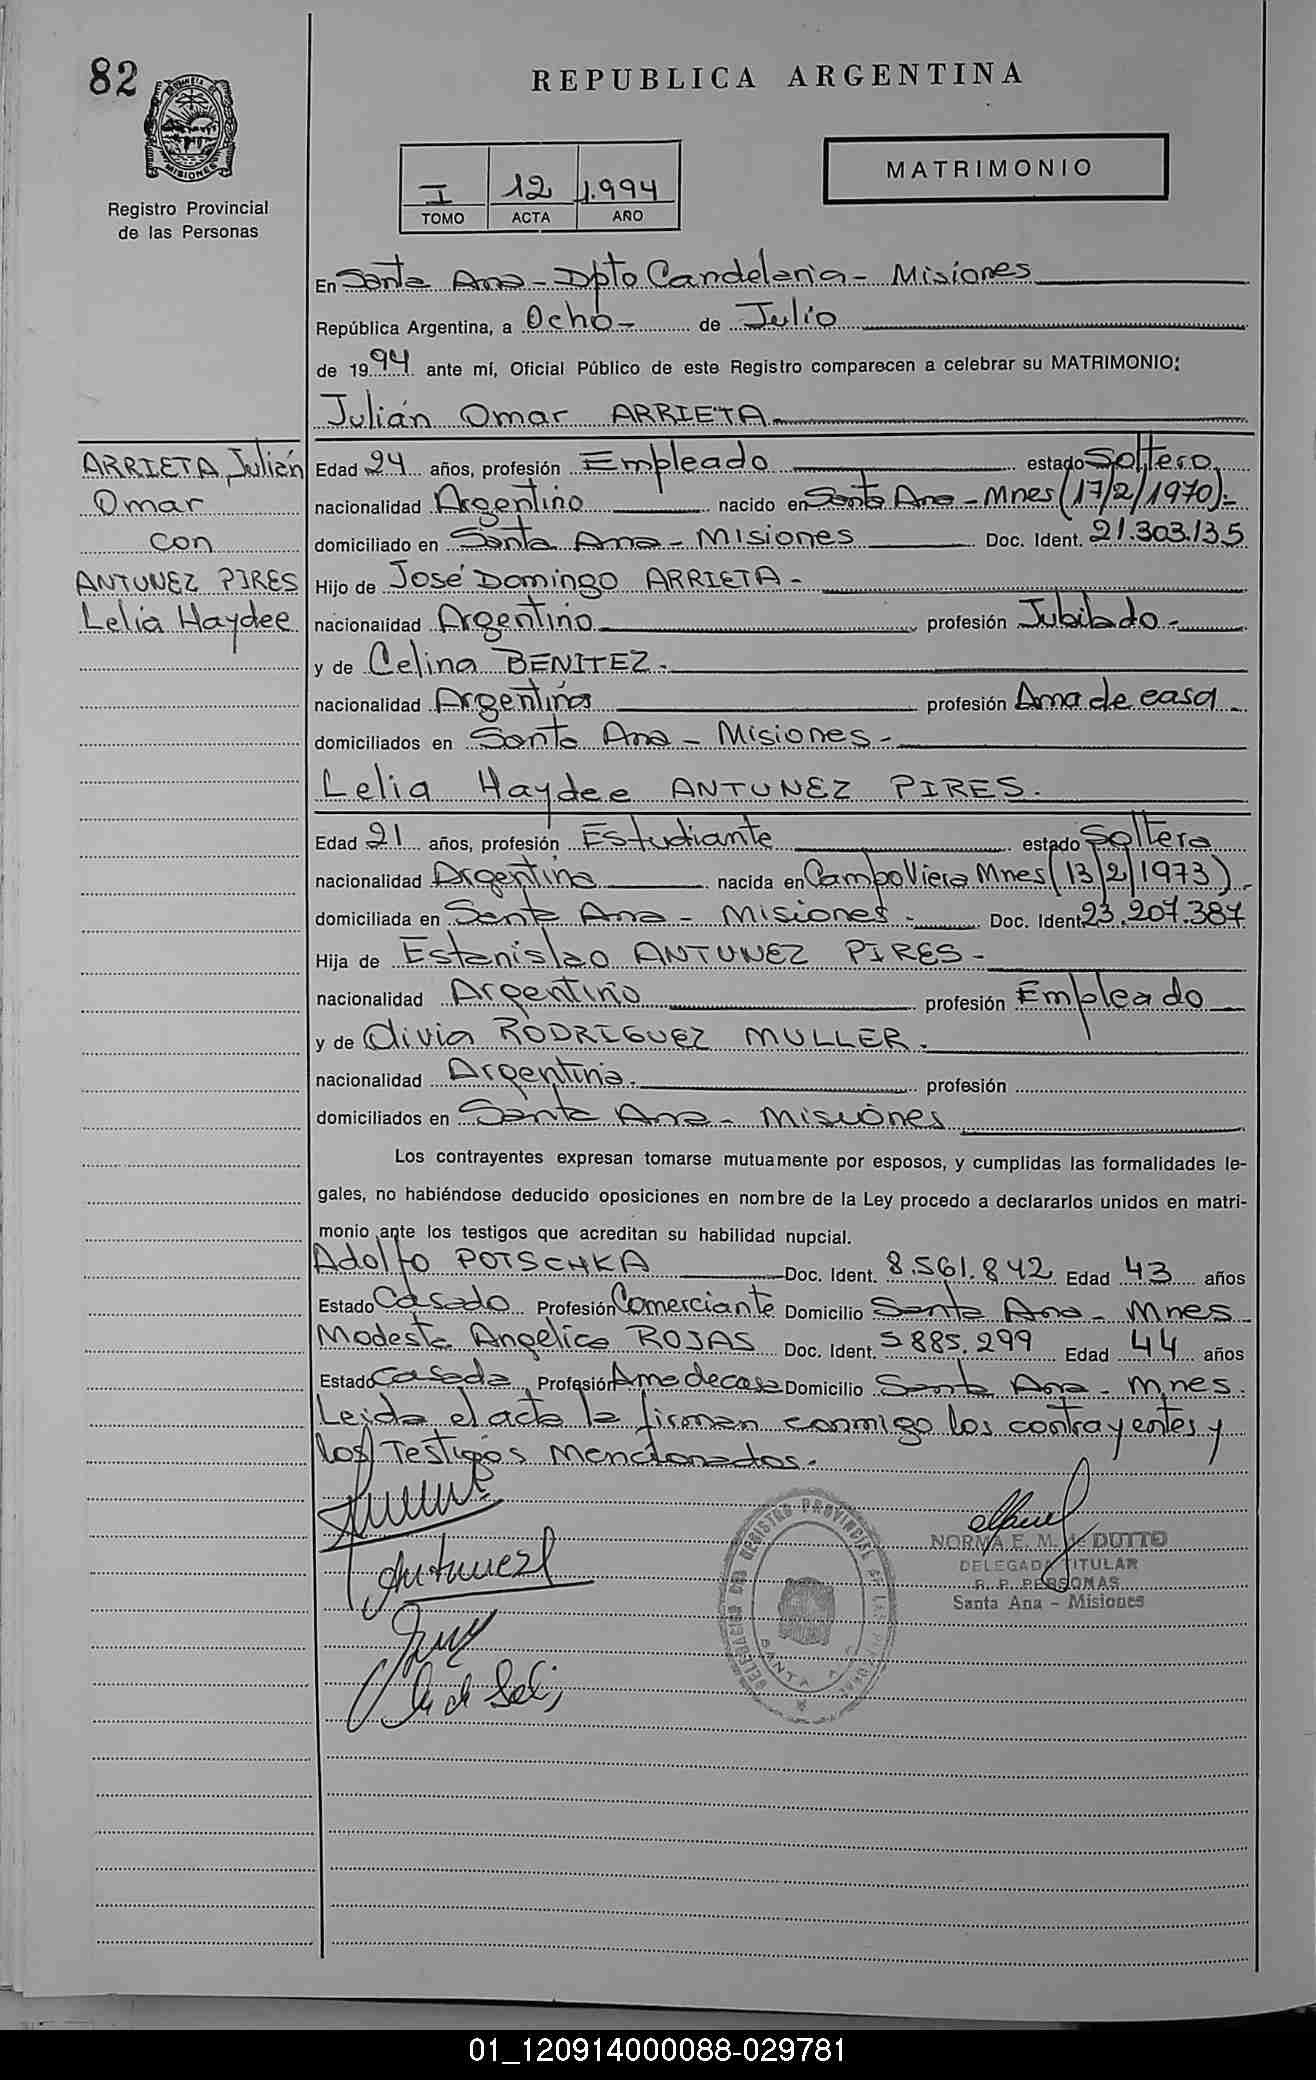 82
REPUBLICA ARGENTINA
MISIONES
Registro Provincial
de las Personas
I 12 1.994
TOMO ACTA AÑO
MATRIMONIO
En Santa Ana - Dpto Candelaria - Misiones
República Argentina, a Ocho - de Julio
de 1994 ante mí, Oficial Público de este Registro comparecen a celebrar su MATRIMONIO:
Julián Omar ARRIETA
ARRIETA Julián
Omar
con
ANTUNEZ PIRES
Lelia Haydee
Edad 24 años, profesión Empleado estado Soltero
nacionalidad Argentino nacido en Santa Ana - Mnes (17/2/1970)-
domiciliado en Santa Ana - Misiones Doc. Ident. 21.303.135
Hijo de José Domingo ARRIETA -
nacionalidad Argentino profesión Jubilado -
y de Celina BENITEZ -
nacionalidad Argentina profesión Ama de casa -
domiciliados en Santa Ana - Misiones -
Lelia Haydee ANTUNEZ PIRES.
Edad 21 años, profesión Estudiante estado Soltera
nacionalidad Argentina nacida en Campo Viera Mnes (13/2/1973) -
domiciliada en Santa Ana - Misiones - Doc. Ident. 23.207.387
Hija de Estanislao ANTUNEZ PIRES -
nacionalidad Argentino profesión Empleado
y de Olivia RODRIGUEZ MULLER.
nacionalidad Argentina. profesión
domiciliados en Santa Ana - Misiones
Los contrayentes expresan tomarse mutuamente por esposos, y cumplidas las formalidades le-
gales, no habiéndose deducido oposiciones en nombre de la Ley procedo a declararlos unidos en matri-
monio ante los testigos que acreditan su habilidad nupcial.
Adolfo POTSCHKA Doc. Ident. 8.561.842 Edad 43 años
Estado Casado Profesión Comerciante Domicilio Santa Ana - Mnes
Modesta Angelica ROJAS Doc. Ident. 5885.299 Edad 44 años
Estado Casada Profesión Ama de casa Domicilio Santa Ana - Mnes.
Leida el acta la firman conmigo los contrayentes y
los Testigos Mencionados.
Antunez
DELEGACION DEL REGISTRO PROVINCIAL DE LAS PERSONAS
SANTA ANA
NORMA E. M. DUTTO
DELEGADA TITULAR
R. P. PERSONAS
Santa Ana - Misiones
01_120914000088-029781